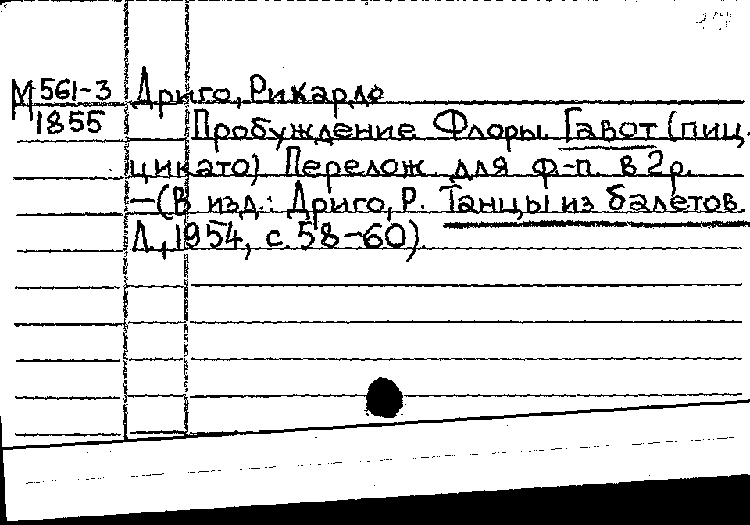 М 561-3
1855
Дриго, Рикардо
Пробуждение Флоры. Гавот (пиц-
цикато) Перелож. для ф-п. в 2 р.
—(В изд.: Дриго, Р. Танцы из балетов.
Л., 1954, с. 58-60).